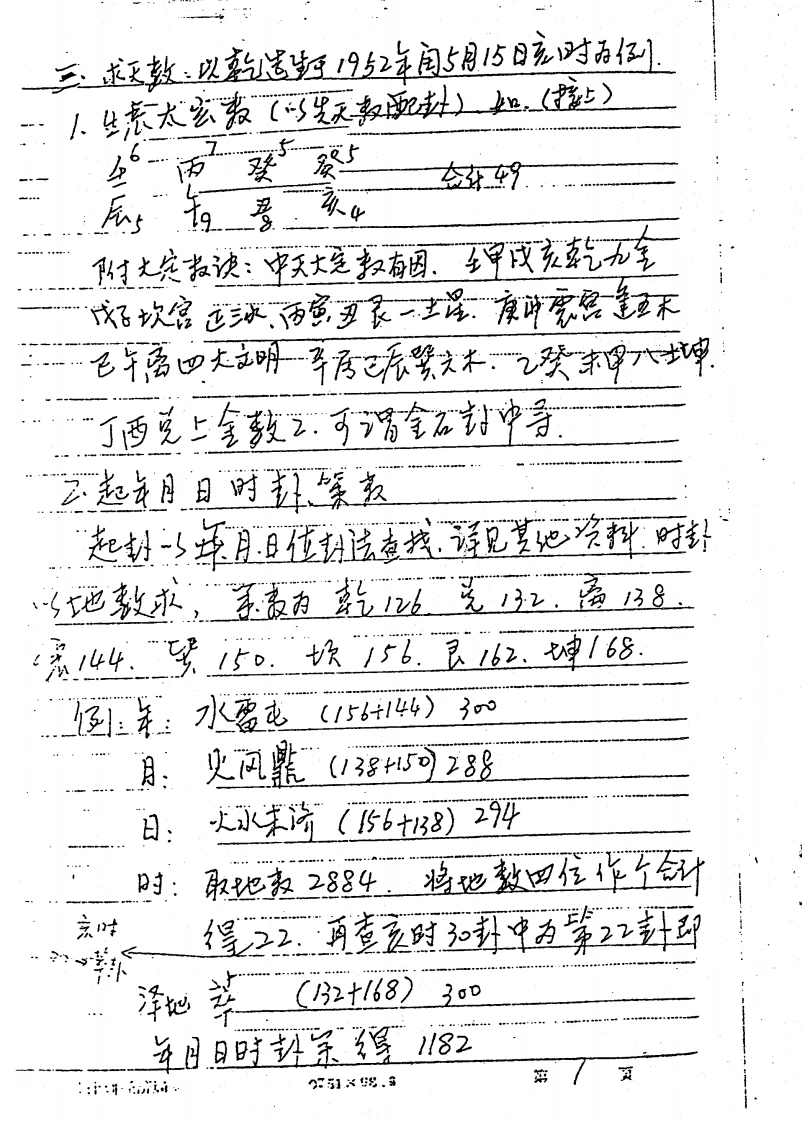 三. 求天数: 以乾造生于1952年闰5月15日亥时为例.
1. 生辰太玄数 (以先天数配卦). 如. (接上)
壬6 丙7 癸5 癸5 合计49
辰5 午9 丑8 亥4
附大定数诀: 中天大定数有因. 壬甲戌亥乾九金
戊子坎宫正三水. 丙寅丑艮一土星. 庚卯震宫逢五木
己午离四大文明 辛居巳辰巽六木. 乙癸未申八土坤.
丁酉兑上金数2. 可谓金石卦中寻.
2. 起年月日时卦, 策数
起卦以年.月.日值卦法查找. 详见其他资料. 时卦
以地数求, 策数为 乾126 兑132. 离138.
震144. 巽150. 坎156. 艮162. 坤168.
例: 年: 水雷屯 (156+144) 300
月: 火风鼎 (138+150) 288
日: 火水未济 (156+138) 294
时: 取地数2884. 将地数四位作个合计
得22. 再查亥时30卦中为第22卦即
亥时
22→萃卦
泽地萃 (132+168) 300
年月日时卦策得 1182
第 1 页